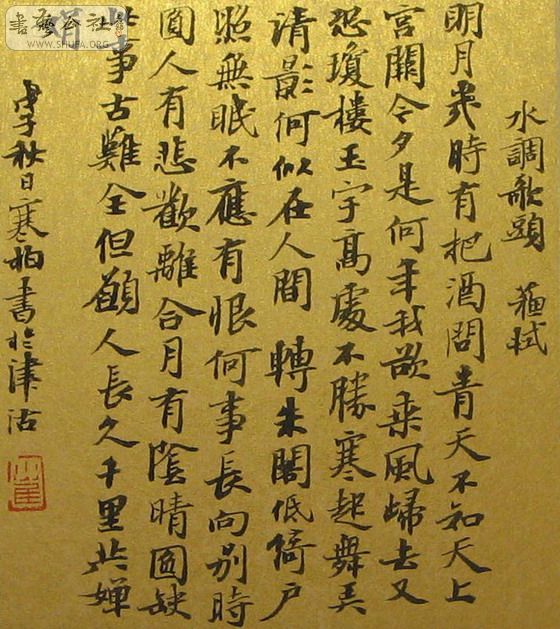 水調歌頭 蘇軾
明月幾時有把酒問青天不知天上
宮闕今夕是何年我欲乘風歸去又
恐瓊樓玉宇高處不勝寒起舞弄
清影何似在人間 轉朱閣低綺戶
照無眠不應有恨何事長向別時
圓人有悲歡離合月有陰晴圓缺
此事古難全但願人長久千里共嬋
娟
戊子秋日寒柏書於津沽
書藝公社
WWW.SHUFA.ORG